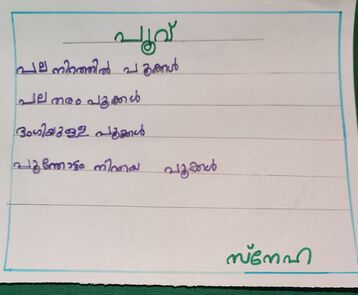 പൂവ്
പല നിറത്തിൽ പൂക്കൾ
പല തരം പൂക്കൾ
ഭംഗിയുള്ള പൂക്കൾ
പൂന്തോട്ടം നിറയെ പൂക്കൾ
സ്നേഹ